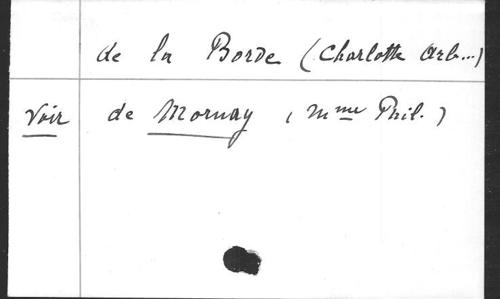 de la Borde (Charlotte Arb...)
Voir de Mornay (Mme Phil.)